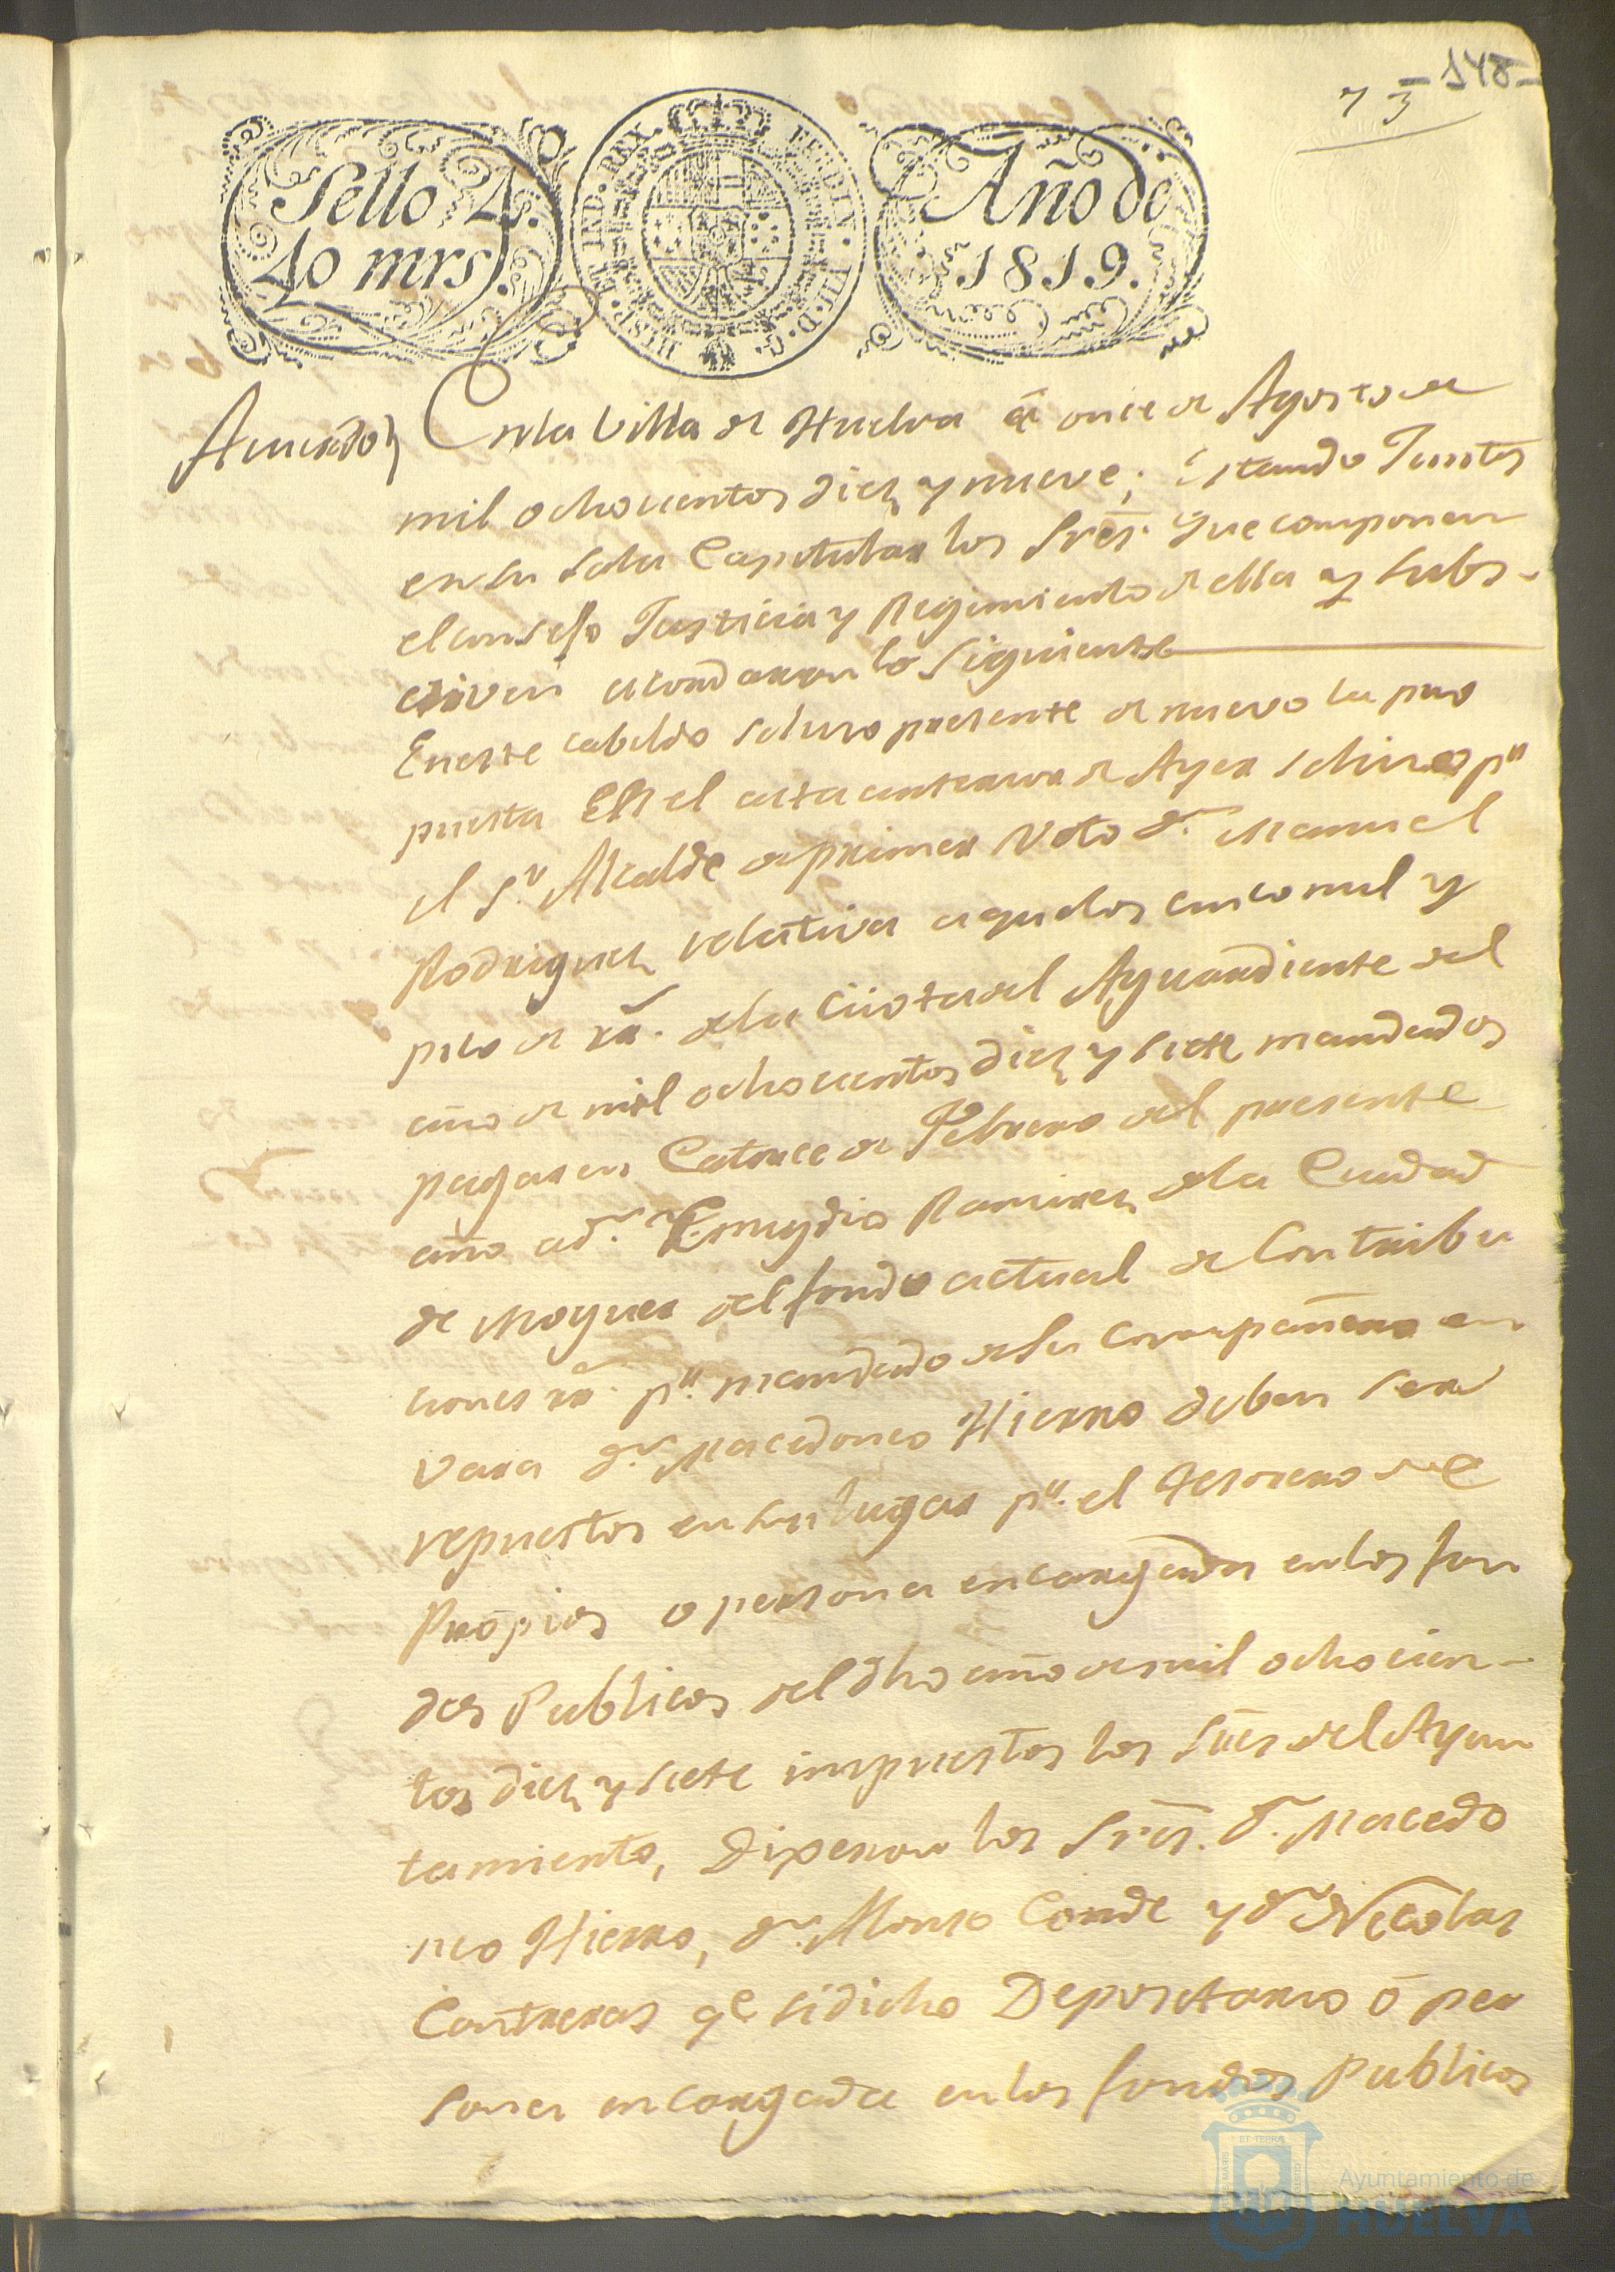 73 148
Sello 4º.
40 mrs.
HISP. ET IND. REX. FERD. VII. D. G.
Año de
1819.
Acuerdo
En la Villa de Huelva á once de Agosto de
mil ochocientos diez y nueve; estando Juntos
en su sala Capitular los Sres. que componen
el consejo Justicia y Regimiento de ella y subs-
criven acordaron lo siguiente
En este cabildo se hizo presente de nuevo la pro
puesta el acta anterior de Ayer se hizo pr.
el Sr. Alcalde de primer Voto Dn. Manuel
Rodriguez relativa a que los cinco mil y
pico de rs. de la Cuota del Aguardiente del
año de mil ochocientos diez y siete mandados
pagar en Catorce de Febrero del presente
año a Dn. Emygdio Ramirez de la Ciudad
de Moguer del fondo actual de Contribu
ciones rs. pr. mandado de su compañero en
vara Dn. Macedonio Hierro deben ser
repuestos en su lugar pr. el tesorero de
Propios o persona encargada en los fon
dos Publicos del dho año de mil ochocien-
tos diez y siete impuestos los Sres del Ayun
tamiento, Dixeron los Sres. Dn. Macedo
nio Hierro, Dn. Alonso Conde y Dn Nicolas
Contreras qe si dicho Depositario ó per
sona encargada en los fondos Publicos
Ayuntamiento de
HUELVA